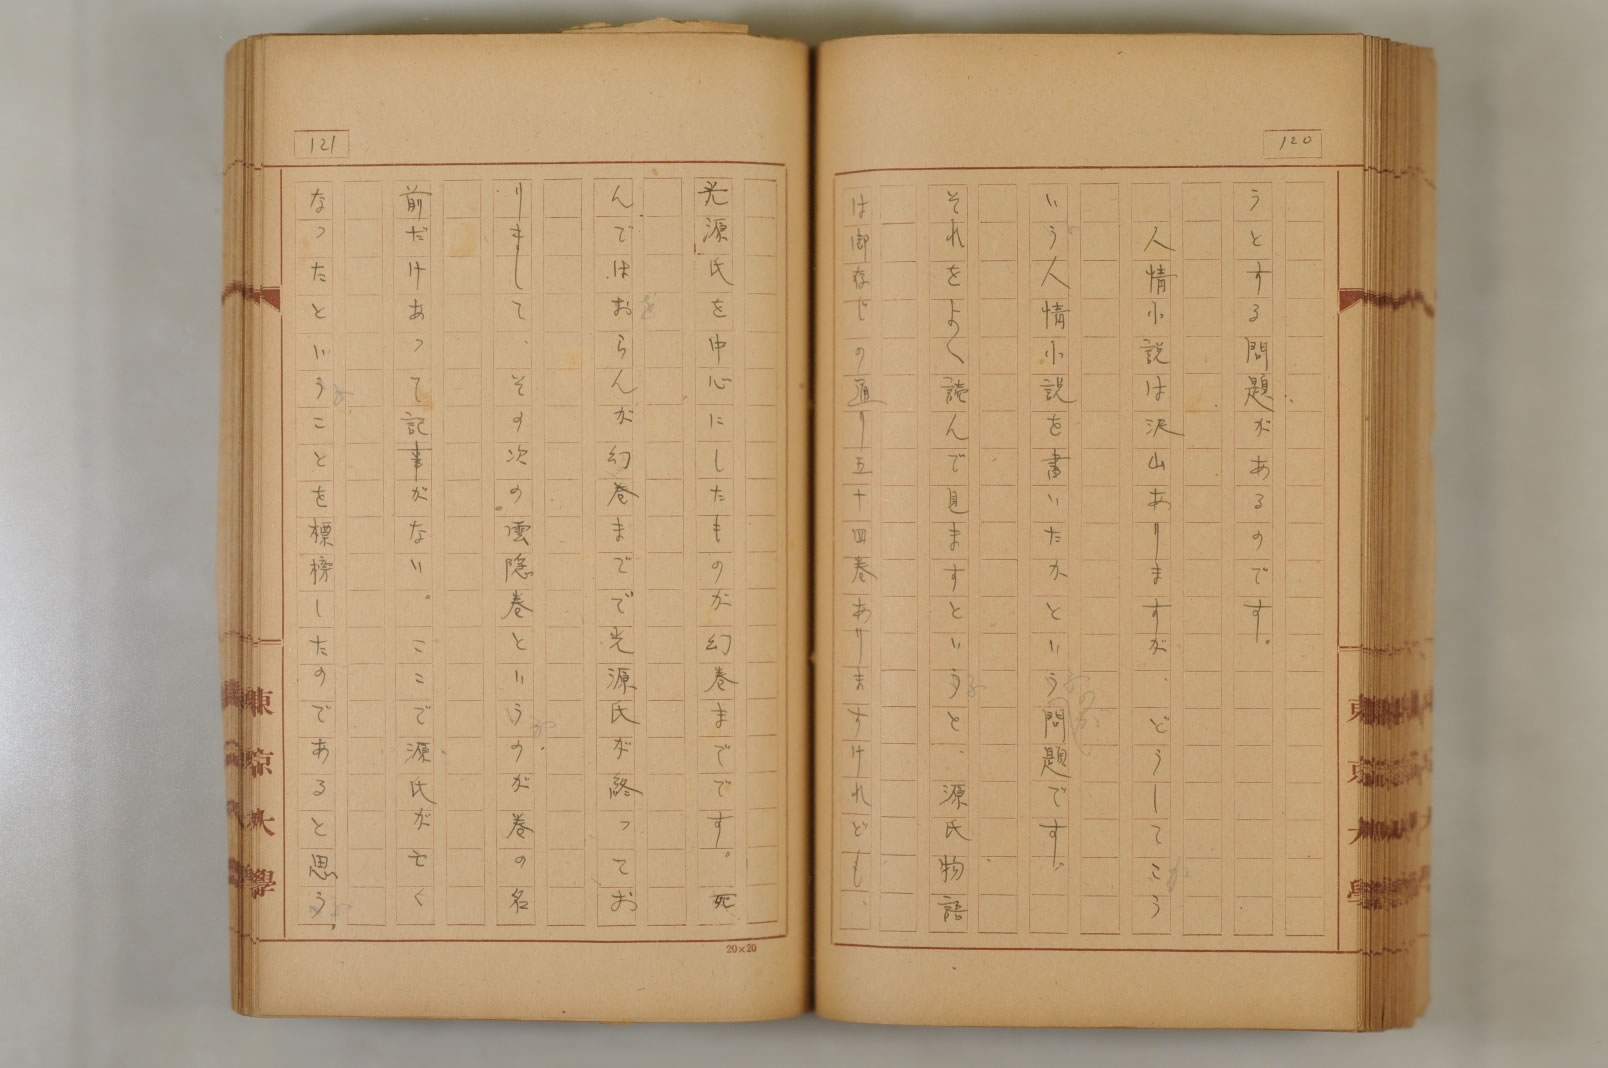 120
うとする問題があるのです。
人情小説は沢山ありますが、どうしてこう
いう人情小説を書いたかという問題です。
それをよく読んで見ますというと、源氏物語
は御存じの通り五十四巻ありますけれども、
東京大學
121
光源氏を中心にしたものが幻巻までです。死
んではおらんが幻巻までで光源氏が終ってお
りまして、その次の雲隠巻というのが巻の名
前だけあって記事がない。ここで源氏が亡く
なったということを標榜したのであると思う。
20×20
東京大學